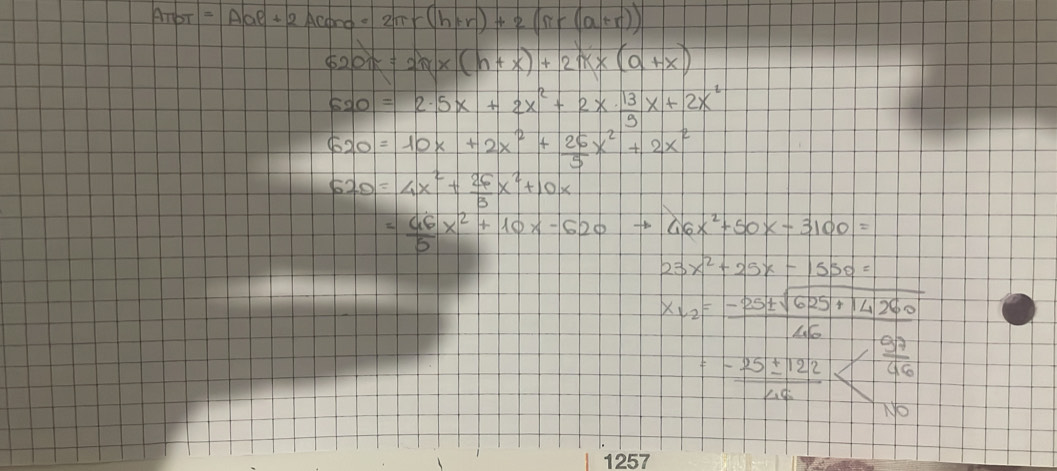 = 2πr(h+r) + 2(πr(a+r))
620π = 2πx(h+x) + 2πx(a+x)
620 = 2·5x + 2x² + 2x · 13/9 x + 2x²
620 = 10x + 2x² + 26/5 x² + 2x²
620 = 4x² + 26/3 x² + 10x
= 46/5 x² + 10x - 620 → 46x² + 50x - 3100 =
23x² + 25x - 1550 =
x₁,₂ = -25±√625+14260 / 46
= -25±122 / 46 < 97/46
NO
1257